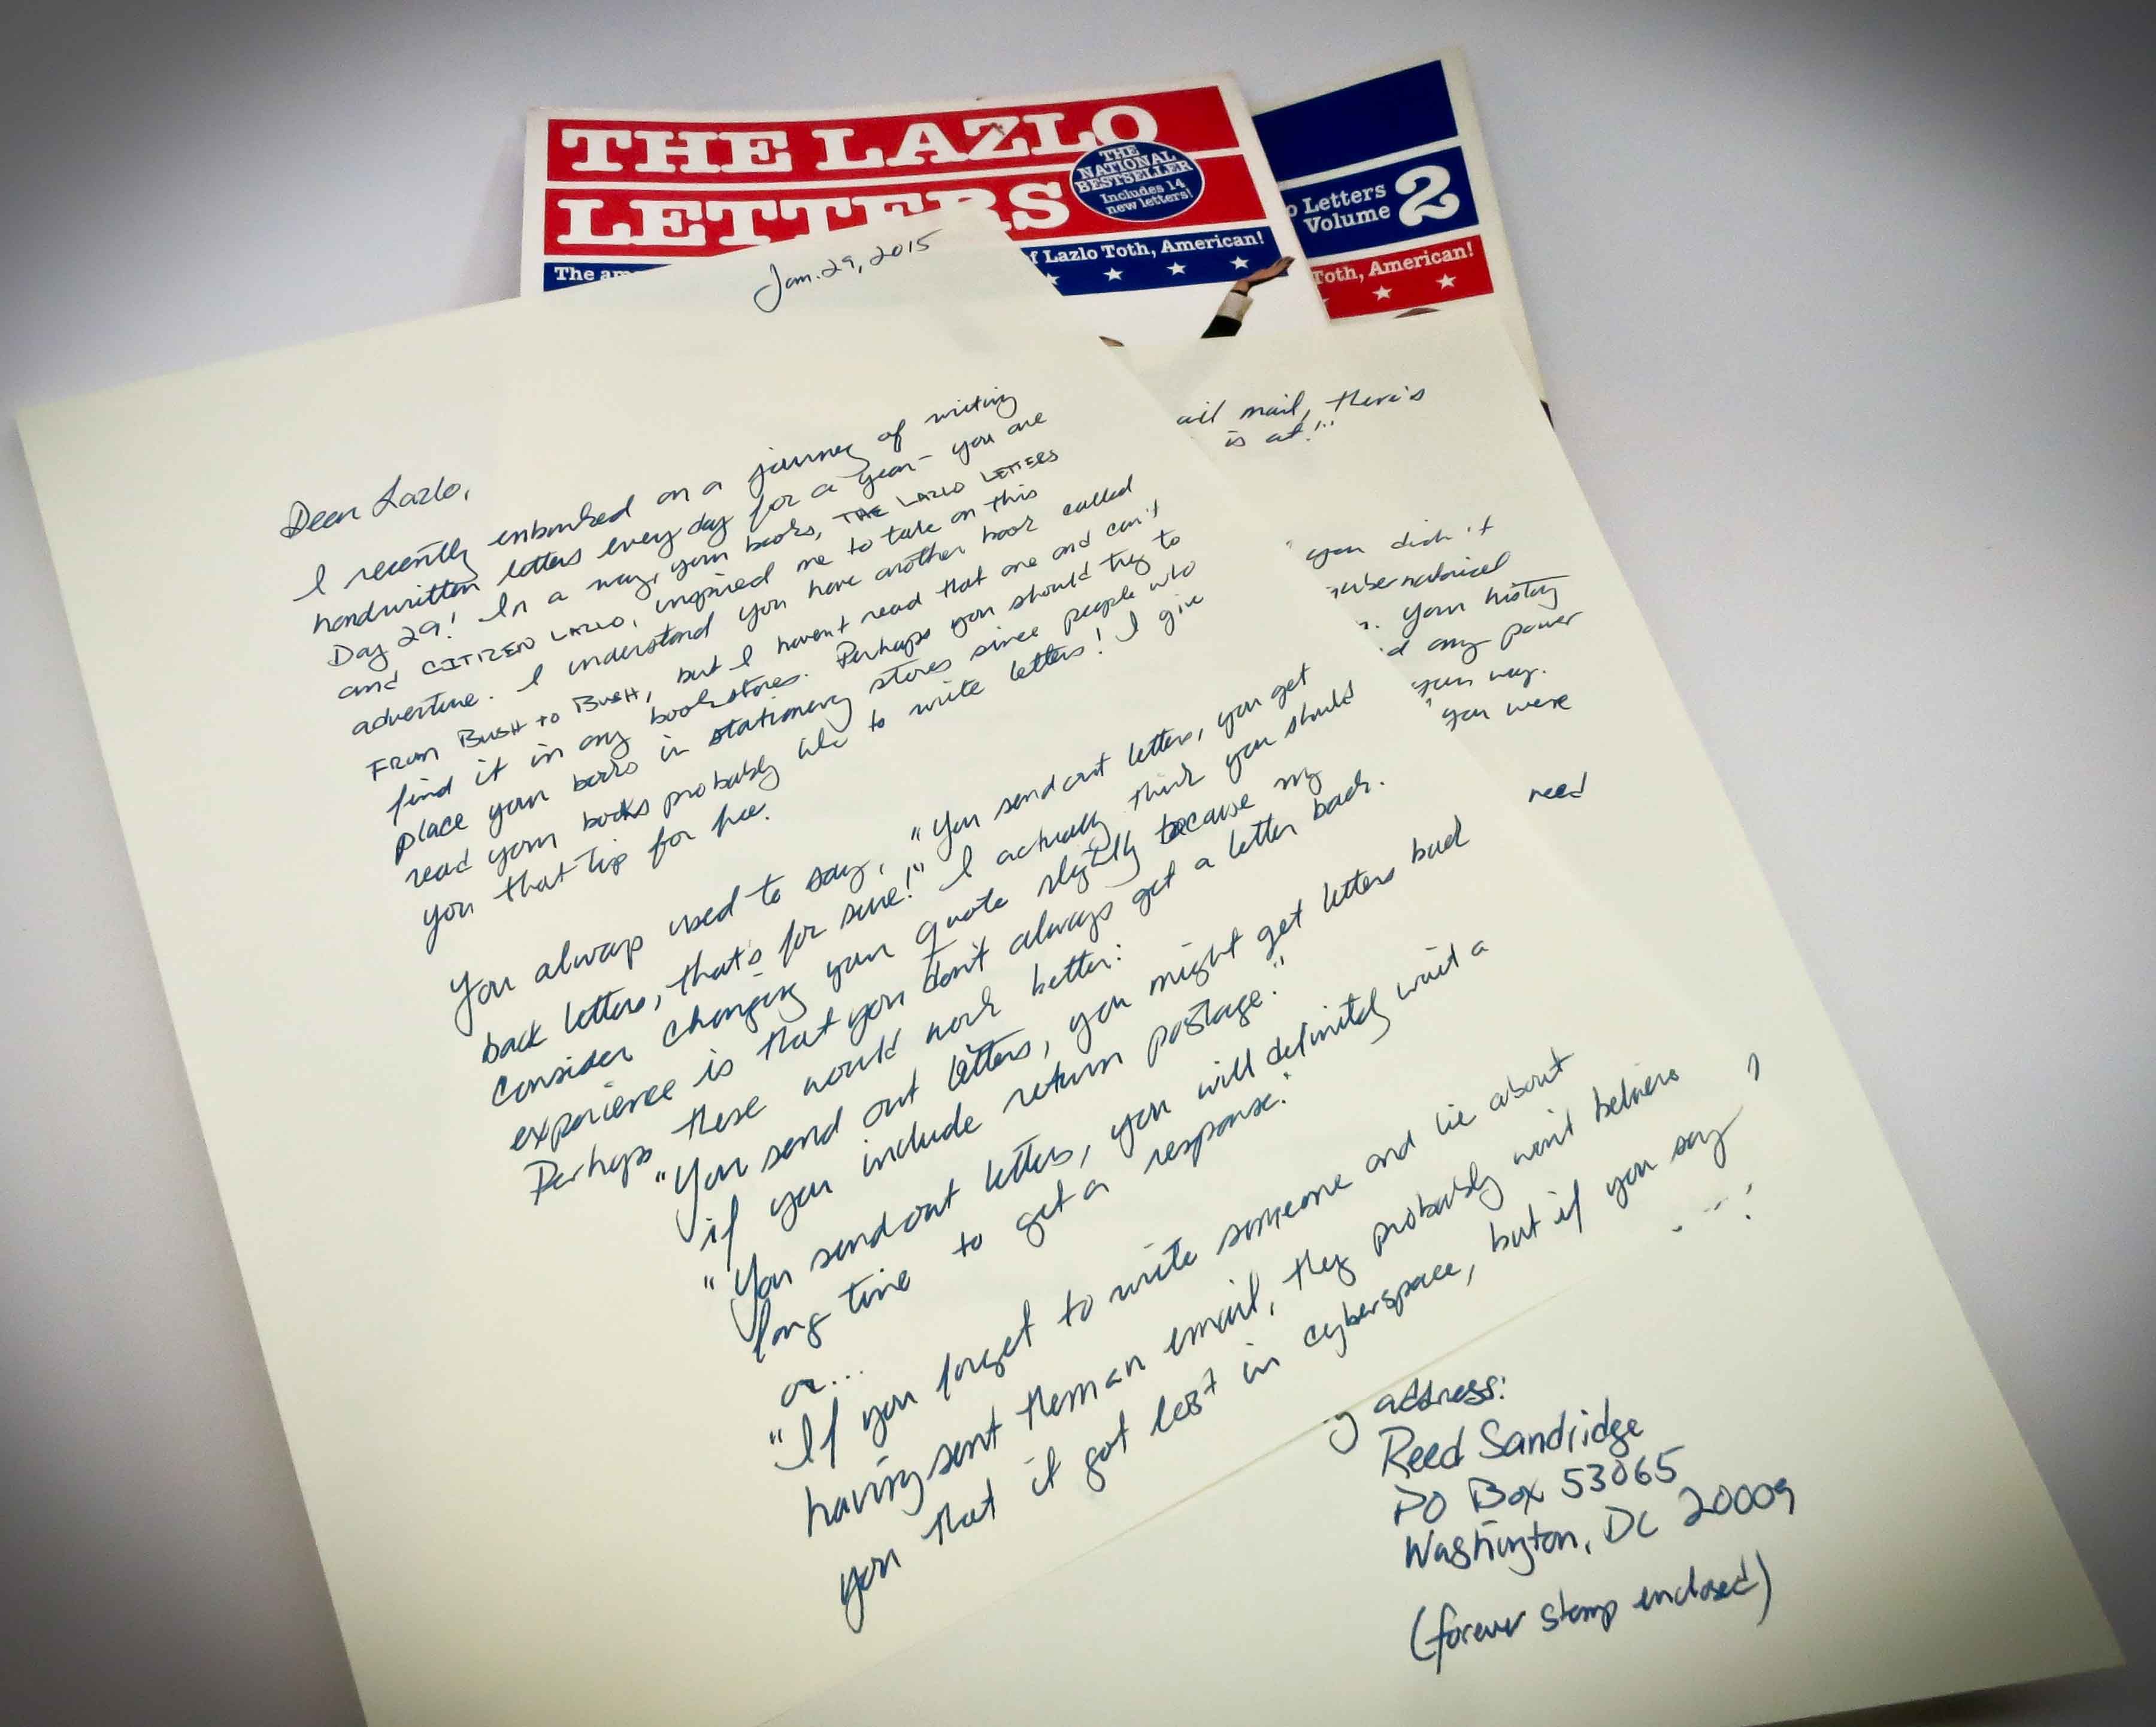 THE LAZLO
LETTERS
THE
NATIONAL
BESTSELLER
Includes 14
new letters!
The am
f Lazlo Toth, American!
o Letters
Volume 2
Toth, American!
Jan. 29, 2015
Dear Lazlo,
I recently embarked on a journey of writing
handwritten letters every day for a year - you are
Day 29! In a way, your books, THE LAZLO LETTERS
and CITIZEN LAZLO, inspired me to take on this
adventure. I understand you have another book called
FROM BUSH TO BUSH, but I haven't read that one and can't
find it in any bookstores. Perhaps you should try to
place your books in stationary stores since people who
read your books probably like to write letters! I give
you that tip for free.
You always used to say, "You send out letters, you get
back letters, that's for sure!" I actually think you should
consider changing your quote slightly because my
experience is that you don't always get a letter back.
Perhaps these would work better:
"You send out letters, you might get letters back
if you include return postage."
"You send out letters, you will definitely wait a
long time to get a response."
or...
"If you forget to write someone and lie about
having sent them an email, they probably won't believe
you that it got lost in cyberspace, but if you say
ail mail, there's
is at!"
you didn't
gubernatorial
your history
d any power
your way.
you were
need
address:
Reed Sandridge
PO Box 53065
Washington, DC 20009
(forever stamp enclosed)